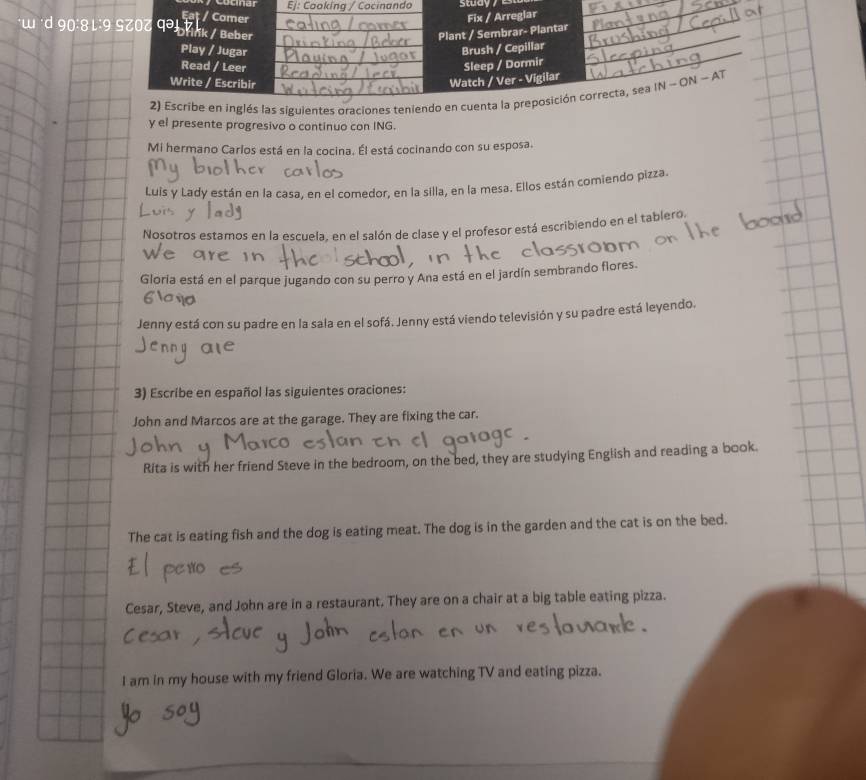 14 feb 2025 6:18:06 p. m.
Ej: Cooking / Cocinando
Eat / Comer eating / comer Fix / Arreglar
Drink / Beber Drinking / Beber Plant / Sembrar- Plantar Planting
Play / Jugar Playing / Jugar Brush / Cepillar Brushing / Cepillar
Read / Leer Reading / leer Sleep / Dormir Sleeping
Write / Escribir Watch / Ver - Vigilar Watching
2) Escribe en inglés las siguientes oraciones teniendo en cuenta la preposición correcta, sea IN – ON – AT
y el presente progresivo o continuo con ING.
Mi hermano Carlos está en la cocina. Él está cocinando con su esposa.
My biother carlos
Luis y Lady están en la casa, en el comedor, en la silla, en la mesa. Ellos están comiendo pizza.
Luis y lady
Nosotros estamos en la escuela, en el salón de clase y el profesor está escribiendo en el tablero.
We are in the school, in the classroom on the board
Gloria está en el parque jugando con su perro y Ana está en el jardín sembrando flores.
Gloria
Jenny está con su padre en la sala en el sofá. Jenny está viendo televisión y su padre está leyendo.
Jenny are
3) Escribe en español las siguientes oraciones:
John and Marcos are at the garage. They are fixing the car.
John y Marco estan en el garage.
Rita is with her friend Steve in the bedroom, on the bed, they are studying English and reading a book.
The cat is eating fish and the dog is eating meat. The dog is in the garden and the cat is on the bed.
El perro es
Cesar, Steve, and John are in a restaurant. They are on a chair at a big table eating pizza.
Cesar, steve y John estan en un
I am in my house with my friend Gloria. We are watching TV and eating pizza.
yo soy